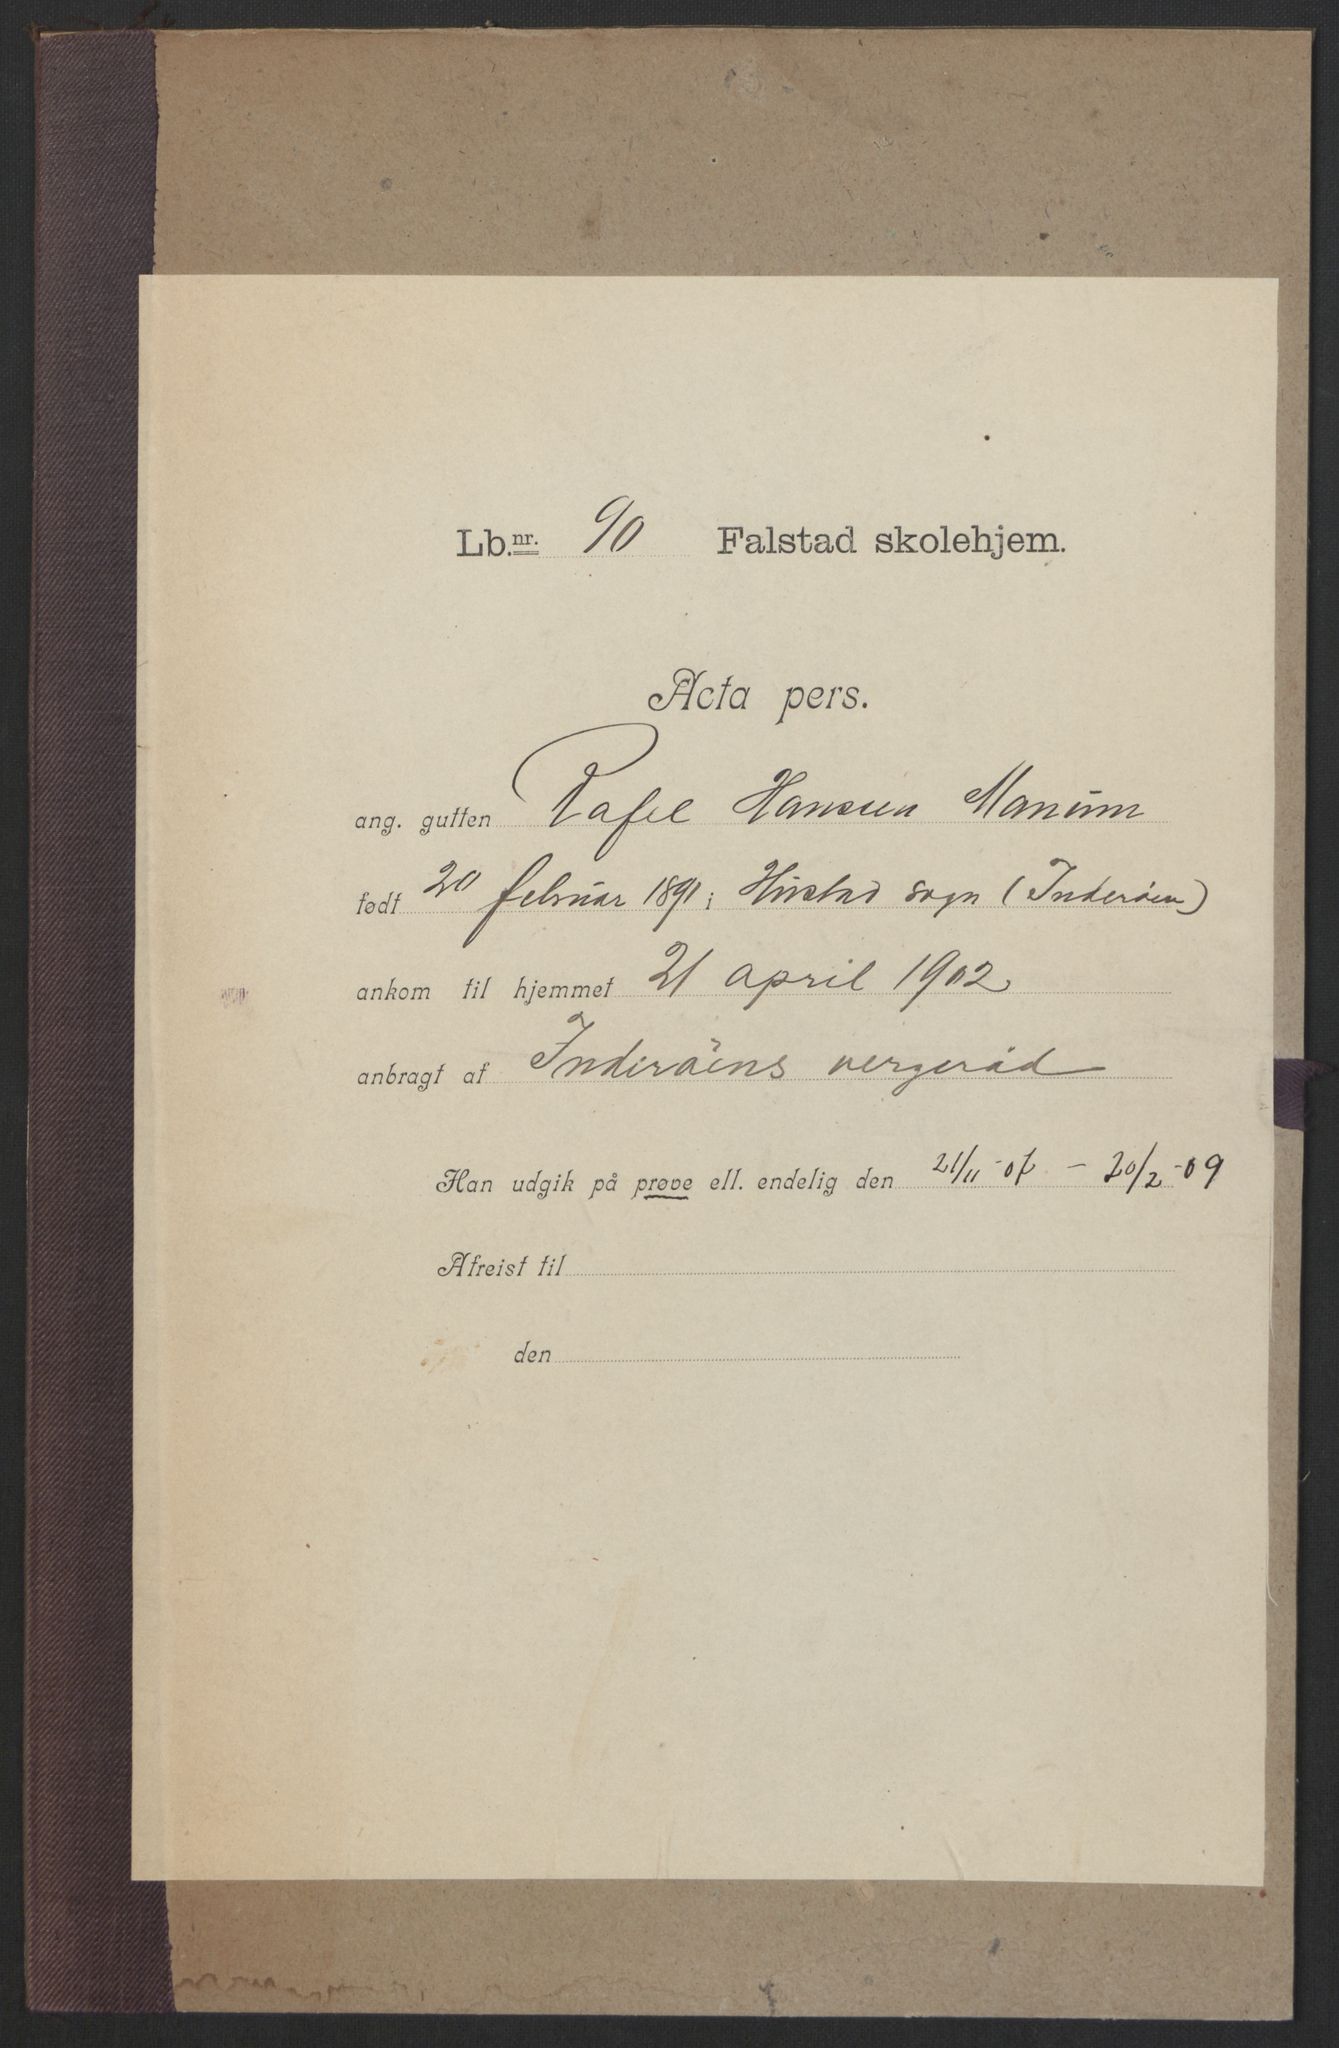 Lb.nr. 90 Falstad skolehjem.
Acta pers.
ang. gutten Rafel Hanssen Manum
født 20 februar 1891 i Hustad sogn (Inderøen)
ankom til hjemmet 21 april 1902
anbragt af Inderøens vergeråd
Han udgik på prøve ell. endelig den 21/11-07 - 20/2-09
Afreist til
den